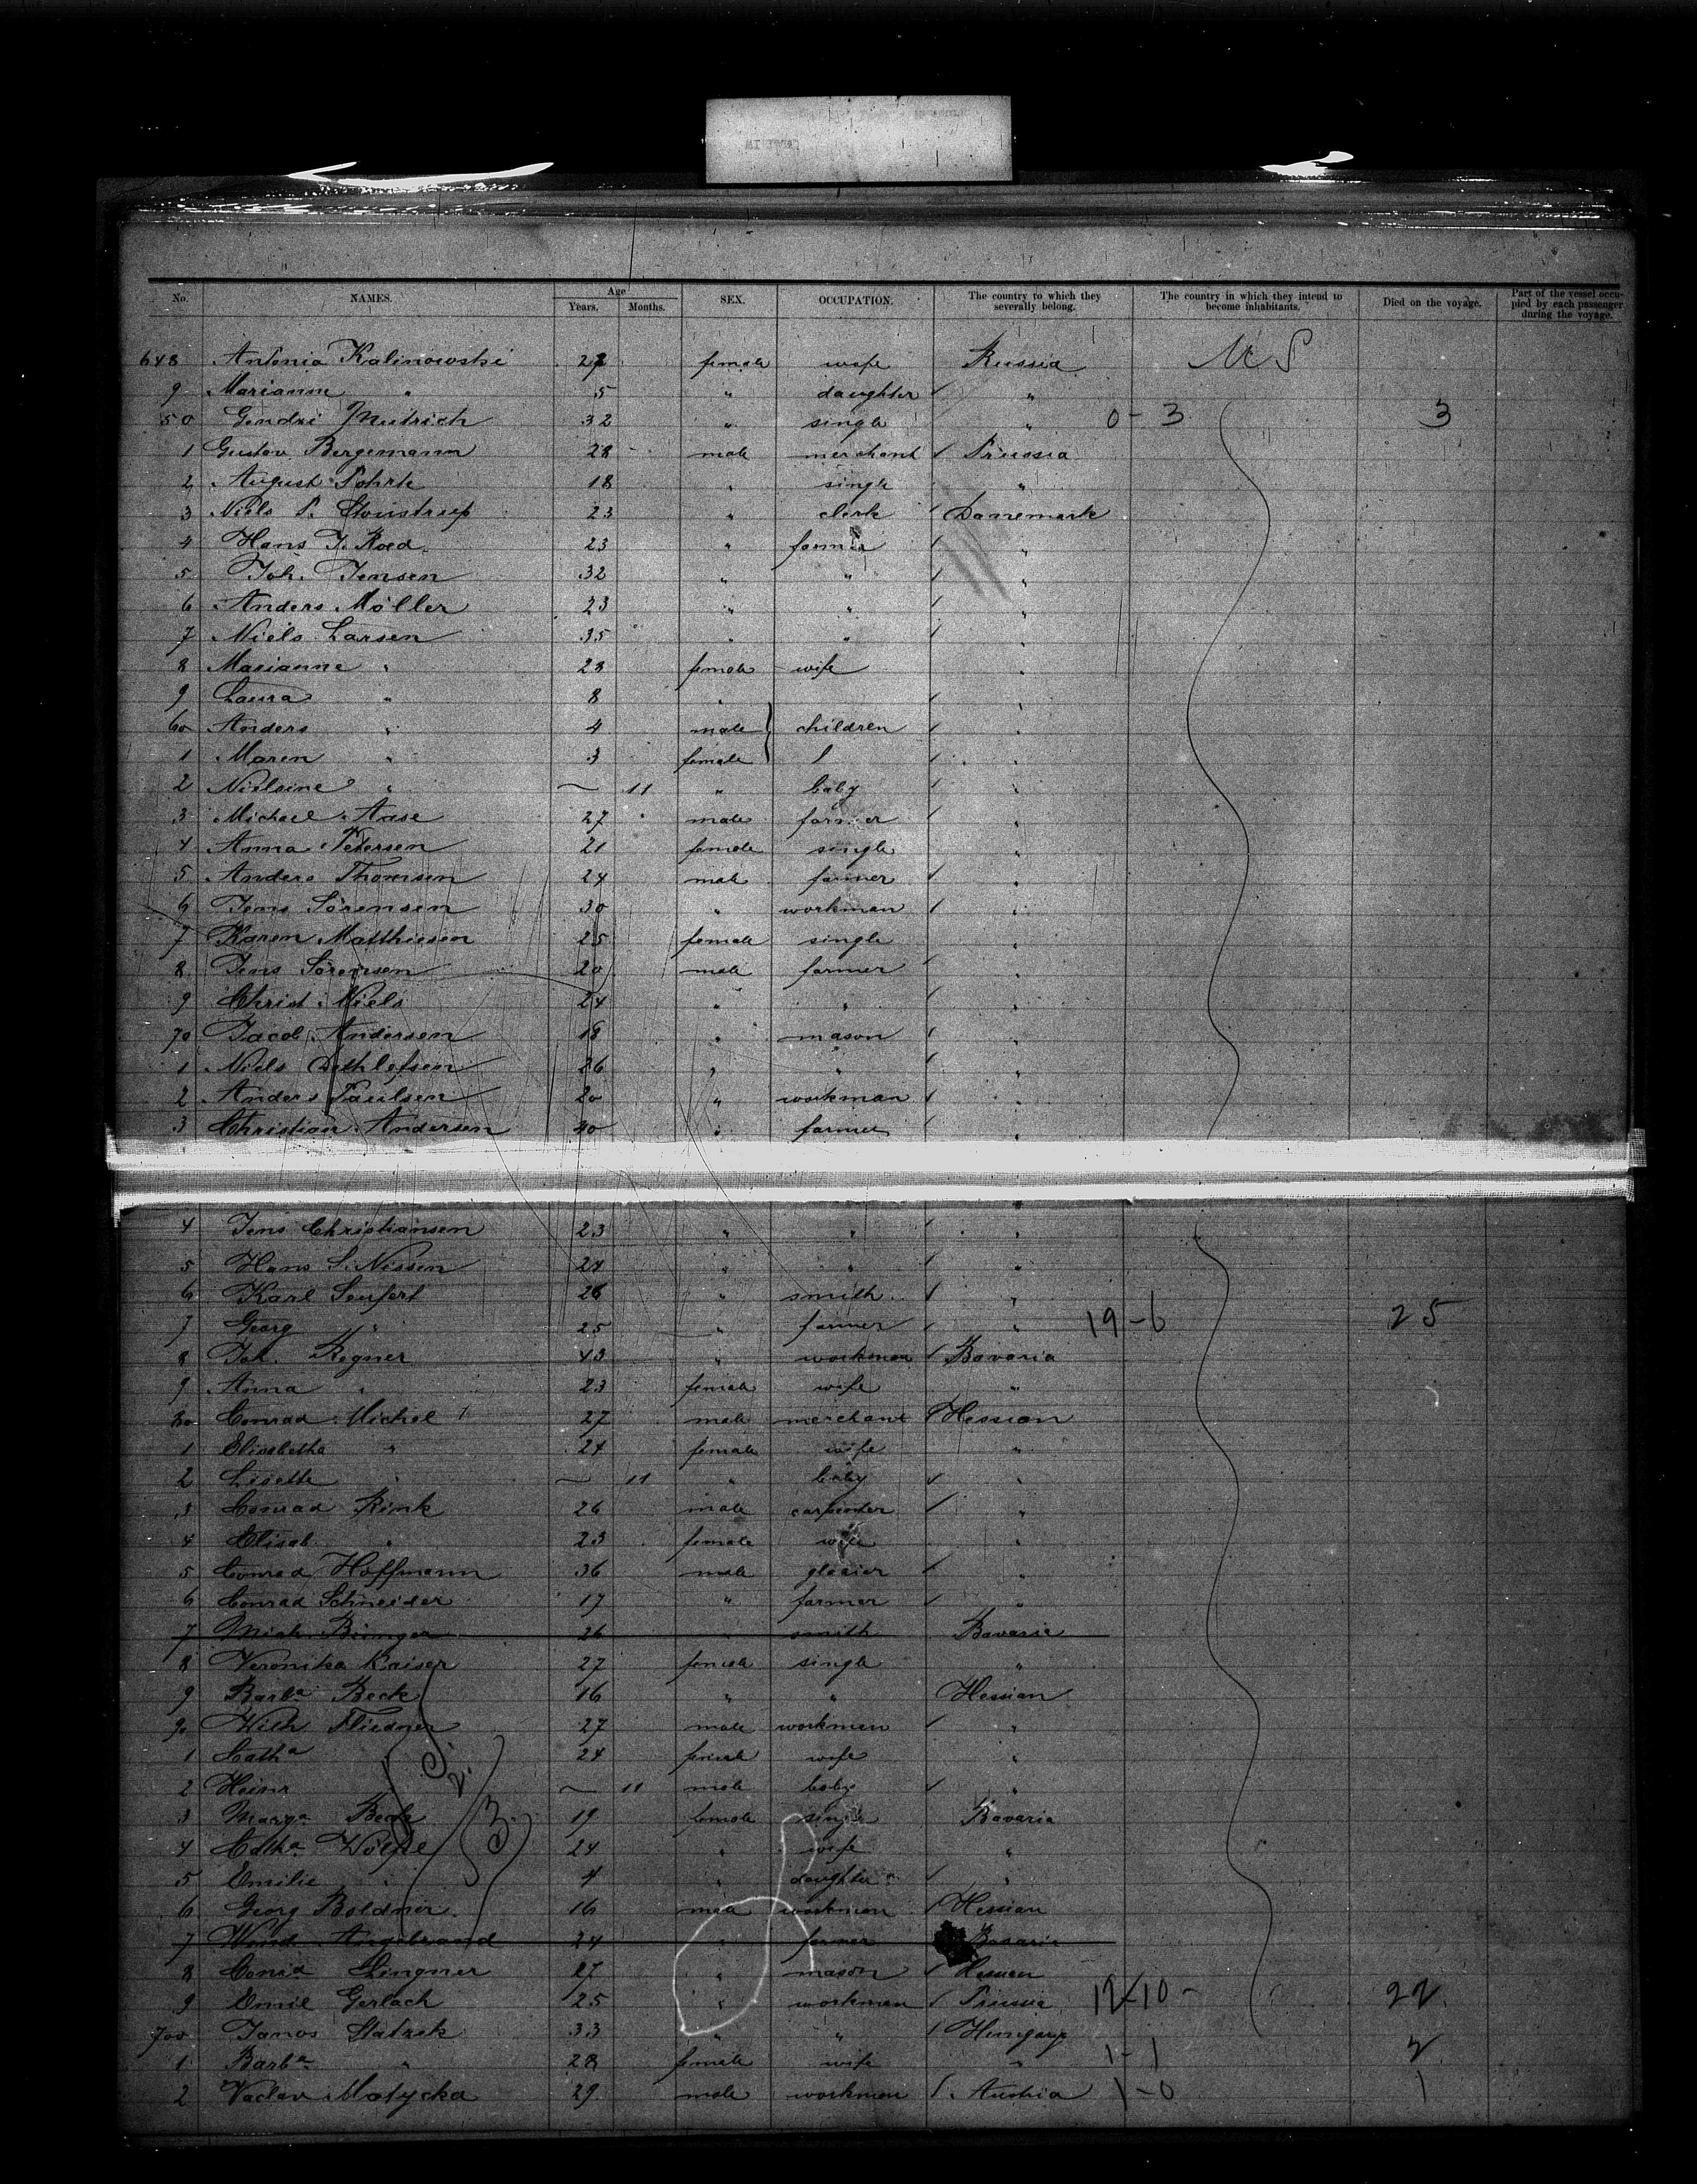 No. NAMES. Age Years. Months. SEX. OCCUPATION. The country to which they severally belong. The country in which they intend to become inhabitants. Died on the voyage. Part of the vessel occupied by each passenger during the voyage.
648 Antonia Kalinowski 27 female wife Russia
9 Marianne " 5 " daughter "
50 32 " single " 0-3 3
1 Gustav Bergemann 28 male merchant Prussia
2 August Pohrte 18 " single "
3 Niels P. 23 " clerk Danemark
4 Hans J. Roed 23 " farmer "
5 Joh. Jensen 32 " " "
6 Anders Möller 23 " " "
7 Niels Larsen 35 " " "
8 Marianne " 28 female wife "
9 Laura " 8 " "
60 Anders " 4 male children "
1 Maren " 3 female "
2 Nielsine " — 11 " baby "
3 Michael Aase 27 male farmer "
4 Anna Petersen 21 female single "
5 Anders Thomsen 24 male farmer "
6 Jens Sörensen 30 " workman "
7 Karen Matthiesen 25 female single "
8 Jens Sörensen 20 male farmer "
9 Christ. Niels 24 " " "
70 Jacob Andersen 18 " mason "
1 Niels Dethlefsen 26 " " "
2 Anders Paulsen 20 " workman "
3 Christian Andersen 40 " farmer "
4 Jens Christiansen 23 " " "
5 Hans S. Nissen 24 " " "
6 Karl Seufert 26 " smith "
7 Georg " 25 " farmer " 19-6 25
8 Joh. Regner 43 " workman Bavaria
9 Anna " 23 female wife "
80 Conrad Michel 27 male merchant Hessian
1 Elisabetha " 24 female wife "
2 Lisette " — 11 " baby "
3 Conrad Rink 26 male carpenter "
4 Elisab. " 23 female wife "
5 Conrad Hoffmann 36 male glasier "
6 Conrad Schneider 17 " farmer "
7 Mich. 26 " smith Bavaria
8 Veronika Kaiser 27 female single "
9 Barba Beck 16 " " Hessian
90 Wilh. Fliedner 27 male workman "
1 Catha " 24 female wife "
2 Heinr. — 11 male baby "
3 Marga Beck 19 female single Bavaria
4 Catha 24 " wife "
5 Emilie " 4 " daughter "
6 Georg Boldner 16 male workman Hessian
7 Angebrand 24 " farmer Bavaria
8 Conrd Lingner 27 " mason Hessian
9 Emil Gerlach 25 " workman Prussia 12-10- 22
700 Janos 33 " " Hungary
1 Barba " 28 female wife " 1-1 2
2 Vaclav Matycka 29 male workman Austria 1-0 1